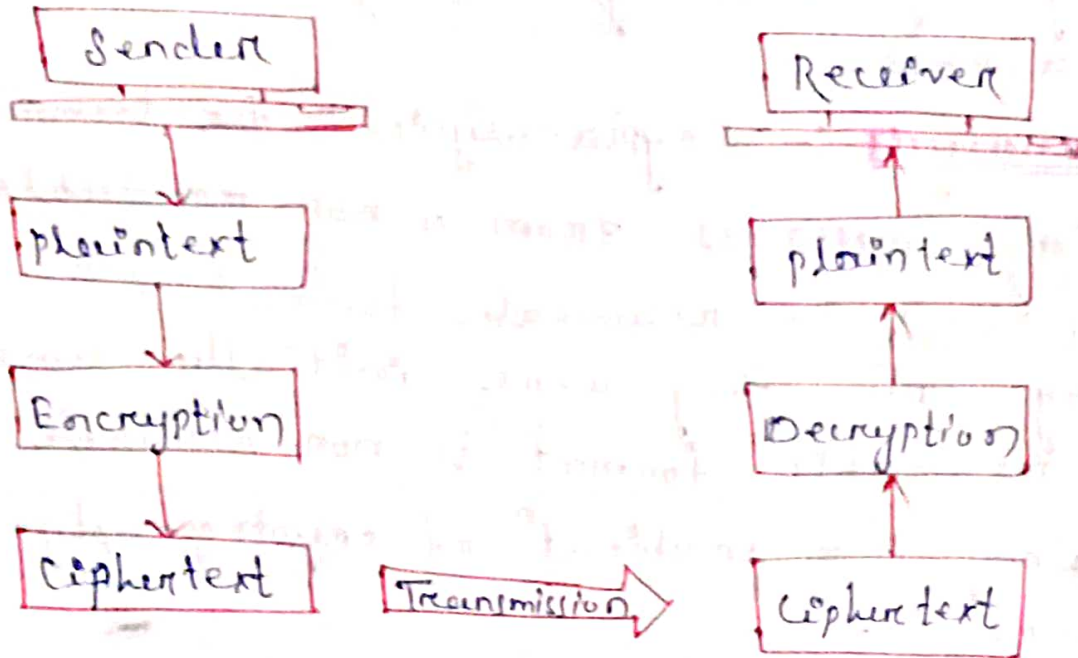 Sender
plaintext
Encryption
Ciphertext
Transmission
Receiver
plaintext
Decryption
Ciphertext